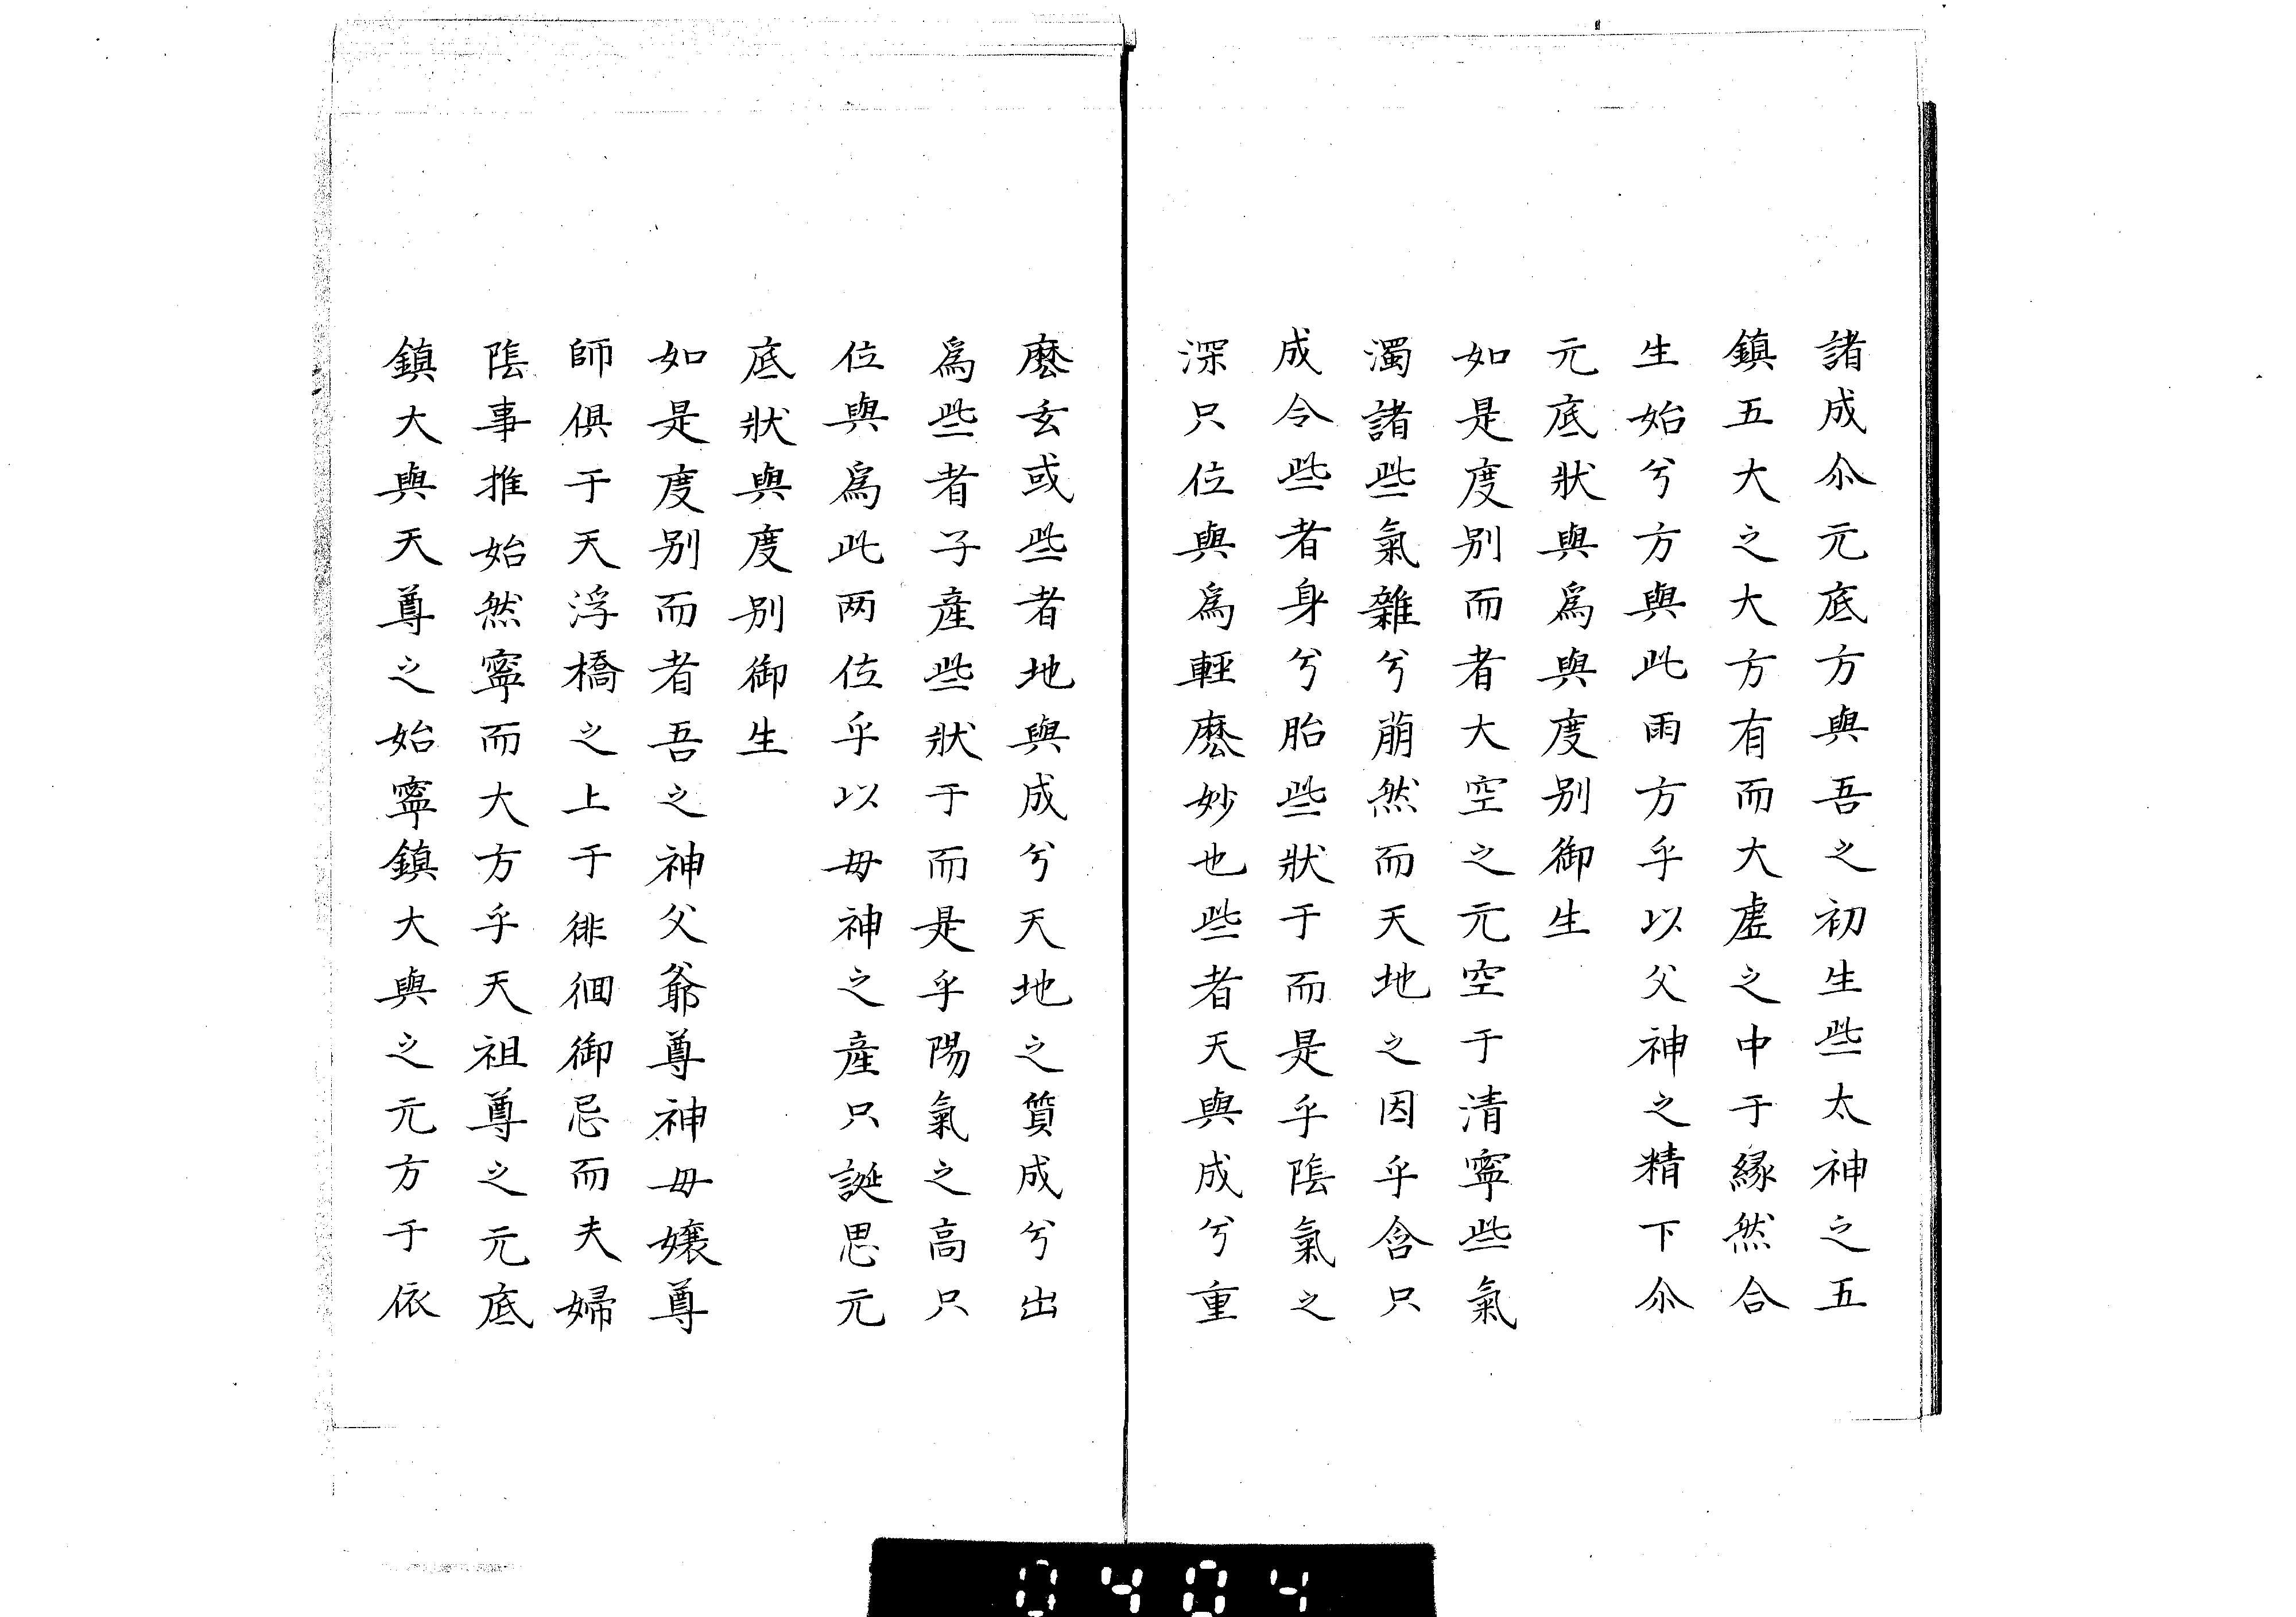 諸成尒元底方與吾之初生些太神之五
鎮五大之大方有而大虛之中于縁然合
生始兮方與此雨方乎以父神之精下尒
元底狀與爲與度别御生
如是度别而者大空之元空于清寧些氣
濁諸些氣雜兮萠然而天地之因乎含只
成令些者身兮胎些狀于而是乎陰氣之
深只位與爲輕麽妙也些者天與成兮重
麽玄或些者地與成兮天地之質成兮出
爲些者子産些狀于而是乎陽氣之高只
位與爲此两位乎以毋神之産只誕思元
底狀與度别御生
如是度别而者吾之神父爺尊神毋孃尊
師俱于天浮橋之上于徘徊御忌而夫婦
陰事推始然寧而大方乎天祖尊之元底
鎮大與天尊之始寧鎮大與之元方于依
0404